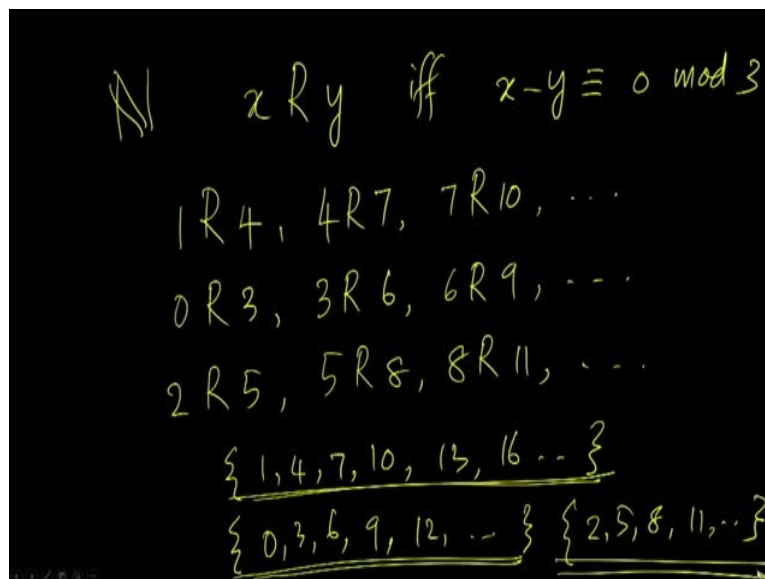 ℕ x R y iff x-y ≡ 0 mod 3
1R4, 4R7, 7R10, ...
0R3, 3R6, 6R9, ...
2R5, 5R8, 8R11, ...
{1,4,7,10,13,16...}
{0,3,6,9,12,...} {2,5,8,11,..}